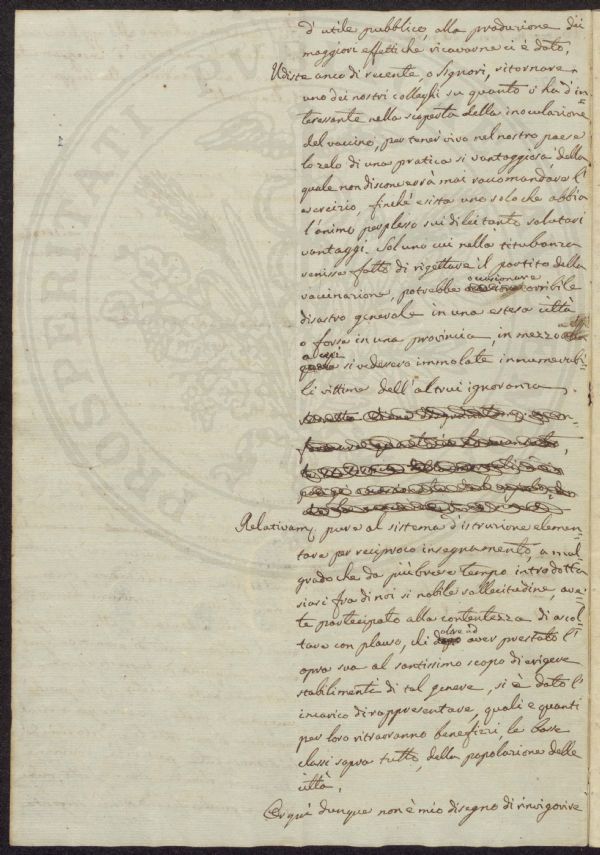 d'utile pubblico, alla produzione dei
maggiori effetti che ricavarne ci è dato,
Udiste anco di recente, o Signori, ritornare
uno dei nostri colleghi su quanto si ha d'in=
teressante nella scoperta della inoculazione
del vaccino, per tener vivo nel nostro paese
lo zelo di una pratica sì vantaggiosa, della
quale non disconverrà mai raccomandare l'
esercizio, finchè esista uno solo che abbia
l'animo perplesso sui di lei tanto salutari
vantaggi. Sol'uno cui nella titubanza
venisse fatto di rigettare il partito della
vaccinazione, potrebbe occasionare orribile
disastro generale in una estesa città
o forse in una provincia, in mezzo
a cui si vedrebbero immolate innumerabi=
li vittime dell'altrui ignoranza.
Relativam. pure al sistema d'istruzione elemen=
tare per reciproco insegnamento, a mal=
grado che da più breve tempo introdotta
siasi fra di noi sì nobile sollecitudine, ave=
te partecipato alla contentezza di ascol=
tare con plauso, chi oltre ad aver prestato l'
opra sua al santissimo scopo di erigere
stabilimenti di tal genere, si è dato l'
incarico di rappresentare, quali e quanti
per loro ritrarranno benefizi, le basse
classi sopra tutto, della popolazione delle
città,
Or quì dunque non è mio disegno di rinvigorire